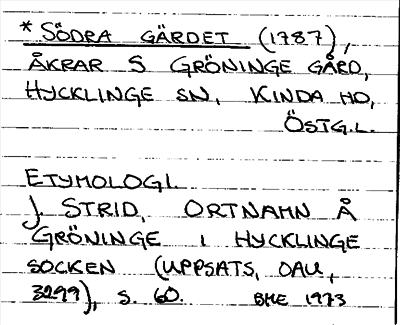 * SÖDRA GÄRDET (1787),
ÅKRAR S GRÖNINGE GÅRD,
HYCKLINGE SN, KINDA HD,
ÖSTG.L.
ETYMOLOGI.
J. STRID, ORTNAMN Å
GRÖNINGE I HYCKLINGE
SOCKEN (UPPSATS, OAU,
3299), S. 60. BHE 1973